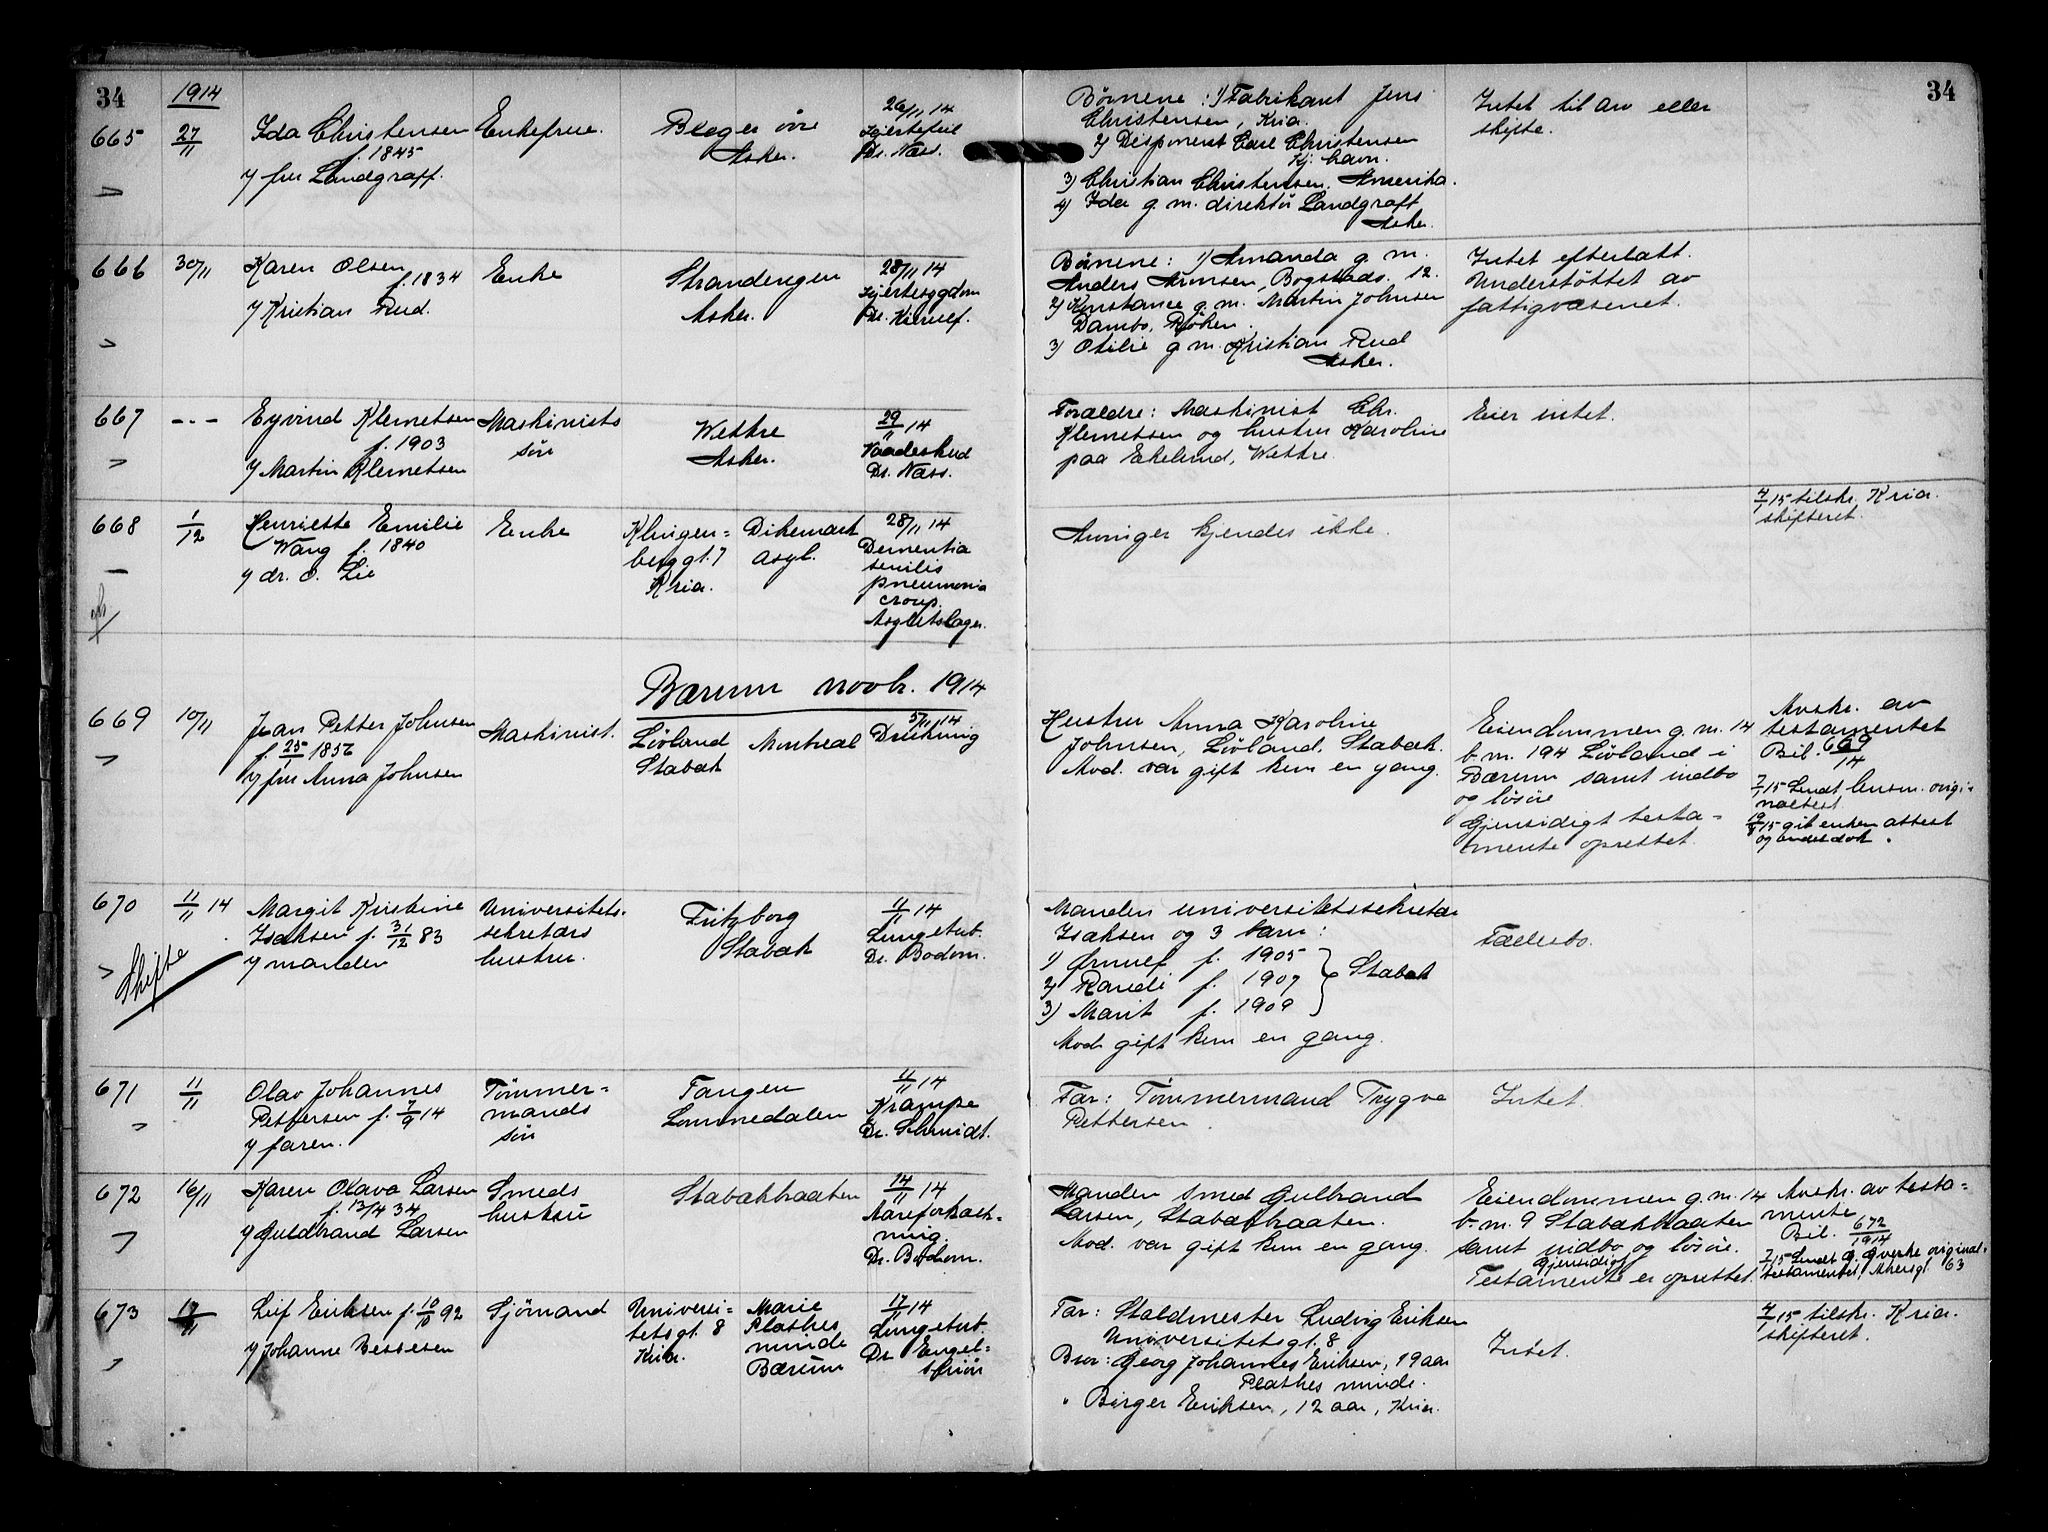 34
1914
34
665
27/11
Ida Christensen
f. 1845
v/ fru Landgraff.
Enkefrue.
øvre
Asker.
26/11 14
Hjertefeil
Dr. Næss.
Børnene: 1) Fabrikant Jens
Christensen, Kria.
2) Disponent Carl Christensen
Kj. havn.
3) Christian Christensen. Amerika.
4) Ida g. m. direktør Landgraff
Asker.
Intet til arv eller
skifte.
666
30/11
Karen Olsen
f. 1834
v/ Kristian Rud.
Enke
Strandengen
Asker.
28/11 14
Hjertesygdom
Dr. Kierulf.
Børnene: 1) Amanda g. m.
Anders Arnesen, Bogstads. 12.
2) Konstance g. m. Martin Johnsen
Dambo, Røken.
3) Otilie g. m. Kristian Rud
Asker.
Intet efterlatt.
Understøttet av
fattigvæsenet.
667
- - -
Eyvind Klemetsen
f. 1903
v/ Martin Klemetsen
Maskinists
søn
Wettre
Asker.
29/11 14
Vaadeskud
Dr. Næss.
Forældre: Maskinist Chr.
Klemetsen og hustru Karoline
paa Ekelund, Wettre.
Eier intet.
668
1/12
Henriette Emilie
Wang f. 1840
v/ dr. O. Lie
Enke
Klingen=
berggt. 7
Kria.
Dikemark
asyl.
28/11 14
Dementia
senilis
pneumonia
croup.
Asyletslæge.
Arvinger kjendes ikke.
4/1 15 tilskr. Kria.
skifteret.
Bærum novbr. 1914
669
10/11
Jean Petter Johnsen
f. 25/1 1856
v/ fru Anna Johnsen
Maskinist.
Løvland
Stabæk
Montreal
5/11 14
Drukning
Hustru Anna Karoline
Johnsen, Løvland. Stabæk.
Avd. var gift kun en gang.
Eiendommen g. m. 14
b. m. 194 Løvland i
Bærum samt indbo
og løsøre
Gjensidigt testa=
mente oprettet.
Avskr. av
testamentet
Bil. 669/14
7/1 15 Sendt lensm. origi=
naltest.
19/8 15 git enken attest
og
670
11/11 14
Margit Kristine
Isaksen f. 31/12 83
v/ manden
Skifte
Universitets-
sekretærs
hustru.
Fritzborg
Stabæk
11/11 14
Lungetub.
Dr. Bodom.
Manden universitetssekretær
Isaksen og 3 barn:
1) Ørnulf f. 1905
2) Randi f. 1907
3) Marit f. 1909
Stabæk
Avd. gift kun en gang.
Fællesbo.
671
11/11
Olav Johannes
Pettersen f. 7/9 14
v/ faren.
Tømmer=
mands
søn
Tangen
Lommedalen
11/11 14
Krampe
Dr. Schmidt.
Far: Tømmermand Trygve
Pettersen.
Intet
672
16/11
Karen Olava Larsen
f. 13/4 34
v/ Guldbrand Larsen
Smeds
hustru
Stabækbraaten
14/11 14
Aareforkalk=
ning.
Dr. Bodom.
Manden smed Gulbrand
Larsen, Stabækbraaten.
Avd. var gift kun en gang.
Eiendommen g. m. 14
b. m. 9 Stabækbraaten
samt indbo og løsøre.
Gjensidig
Testamente er oprettet.
Avskr. av testa=
mente
Bil. 672/1914
7/1 15 Sendt G. original-
testamentet, Akersgt. 63
673
17/11
Leif Eriksen f. 10/10 92
v/ Johanne Bessesen
Sjømand
Universi=
tetsgt. 8
Kria.
Marie
Plathes
minde
Bærum
17/11 14
Lungetub.
Dr. Engel-
schiøn
Far: Staldmester Ludvig Eriksen
Universitetsgt. 8.
Bror: Georg Johannes Eriksen, 19 aar
Plathes minde.
" Birger Eriksen, 12 aar, Kria.
Intet.
4/1 15 tilskr. Kria.
skifteret.